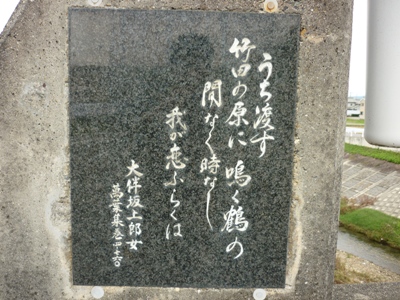 うち渡す
竹田の原に 鳴く鶴の
間なく時なし
我が恋ふらくは
大伴坂上郎女
萬葉集巻四・七六〇